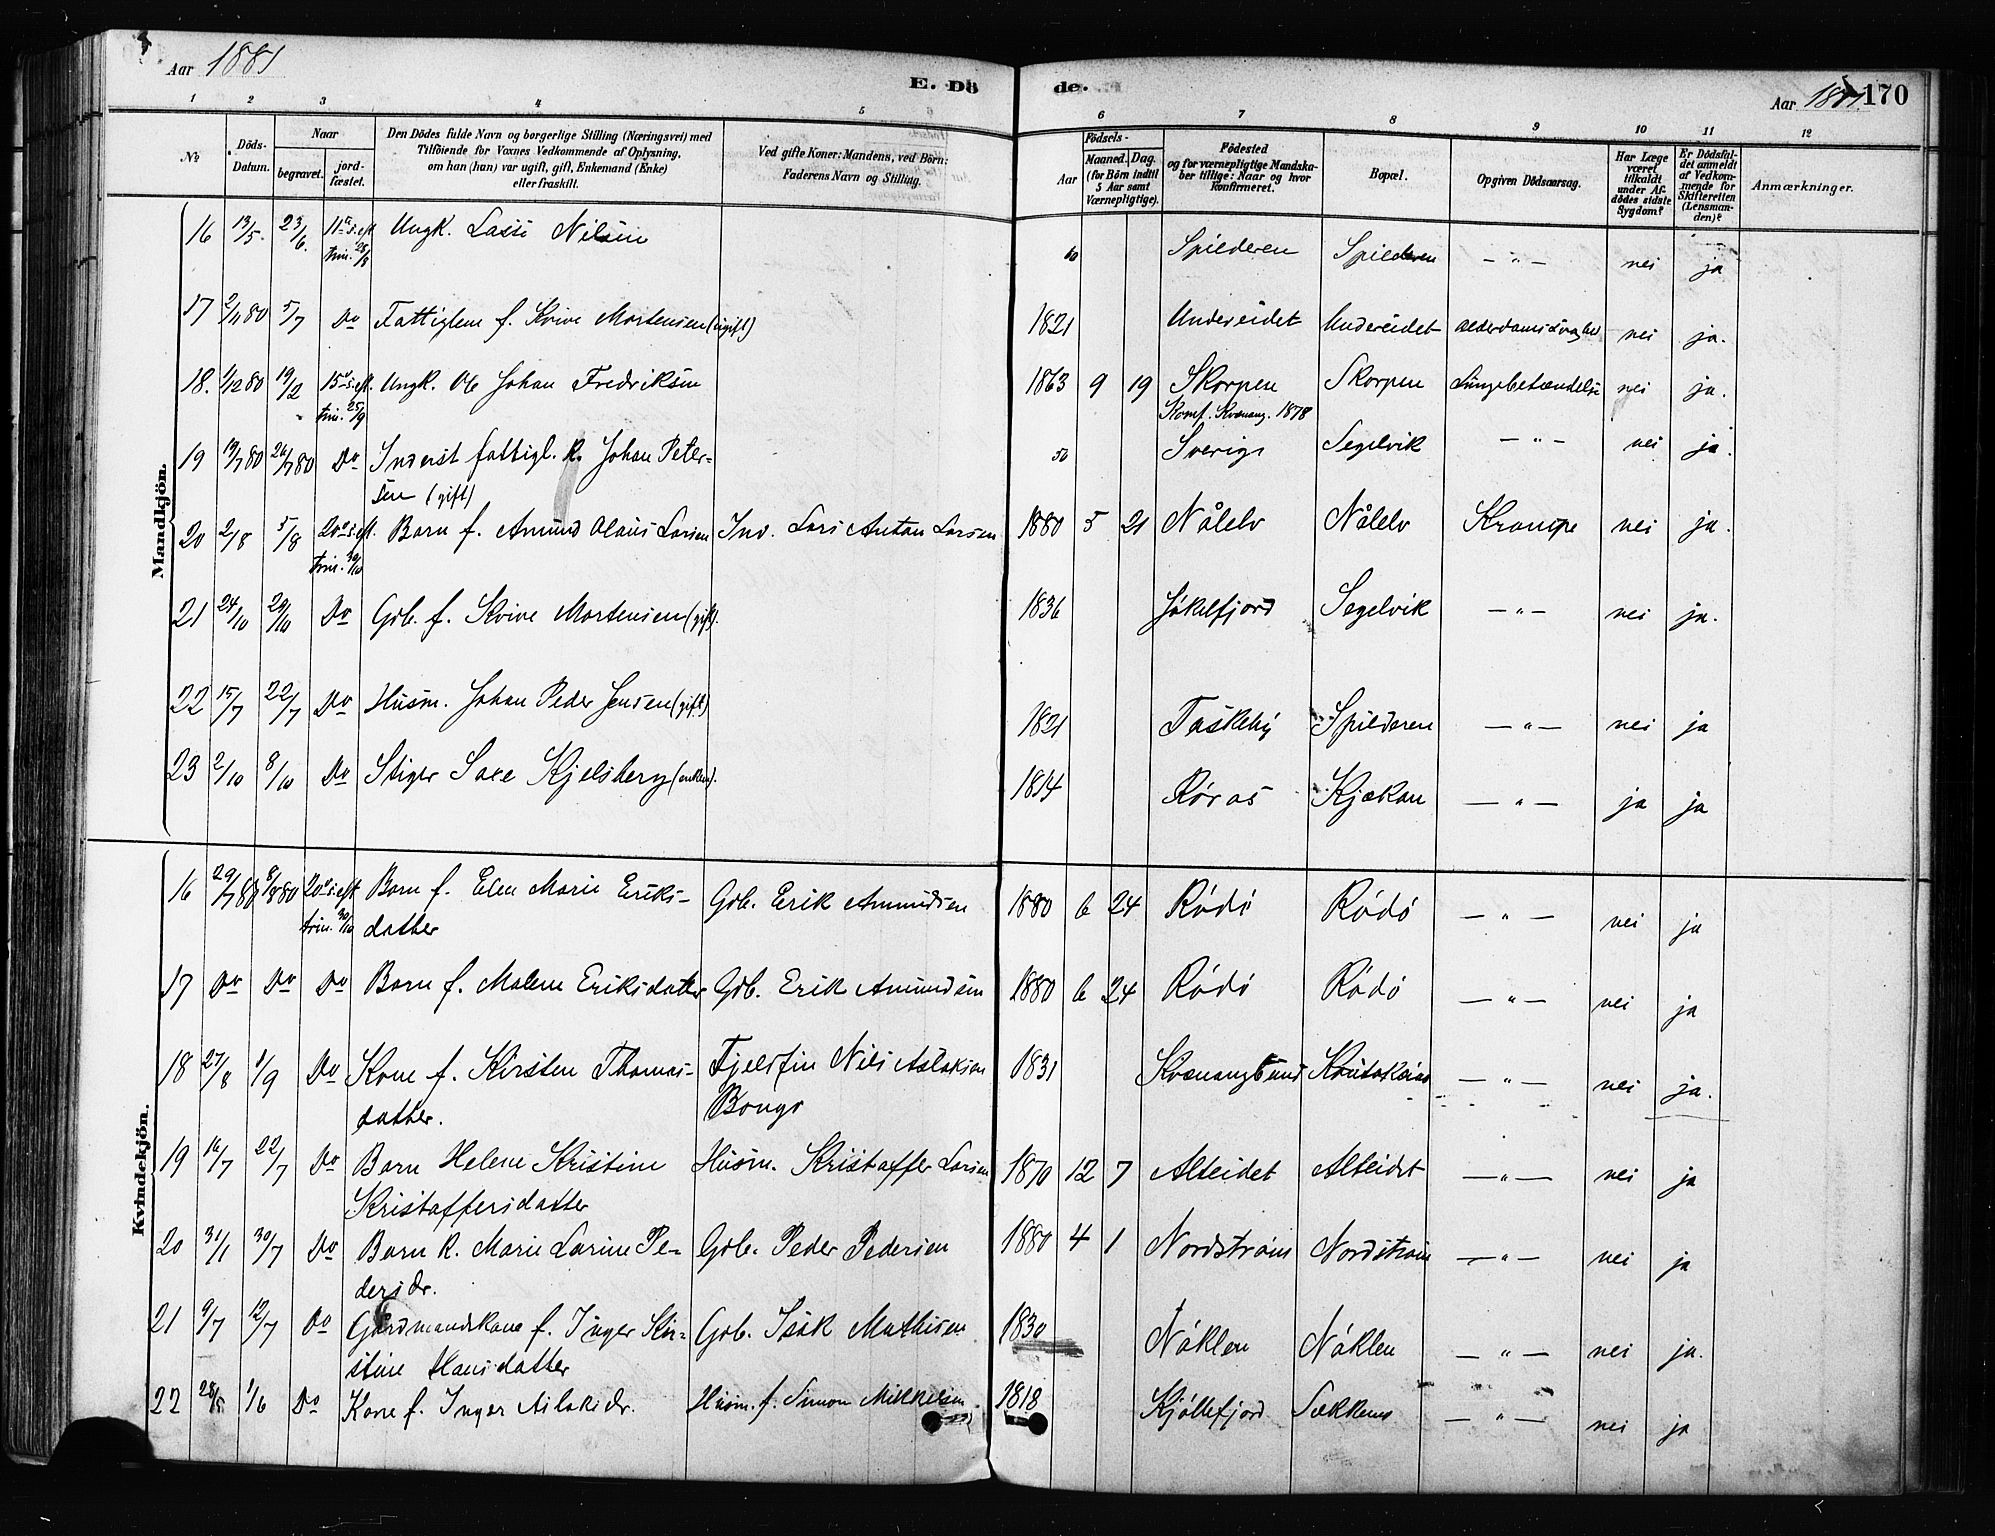 Aar 1881
E. Dö
de.
Aar 1881. 170
1 2 3 4 5 6 7 8 9 10 11 12
№
Döds-
Datum.
Naar
begravet.
jord-
fæstet.
Den Dödes fulde Navn og borgerlige Stilling (Næringsvei) med
Tilföiende for Voxnes Vedkommende af Oplysning,
om han (hun) var ugift, gift, Enkemand (Enke)
eller fraskilt.
Ved gifte Koner: Mandens, ved Börn:
Faderens Navn og Stilling.
Födsels-
Aar
Maaned. Dag.
(for Börn indtil
5 Aar samt
Værnepligtige).
Födested
og for værnepligtige Mandska-
ber tillige: Naar og hvor
konfirmeret.
Bopæl.
Opgiven Dödsaarsag.
Har Læge
været
tilkaldt
under Af-
dödes sidste
Sygdom?
Er Dödsfal-
det anmeldt
af Vedkom-
mende for
Skifteretten
(Lensman-
den)?
Anmærkninger.
Mandkjön.
16 13/5. 23/6. 11te s. eft. Ungk. Lasse Nilsen 60 Spilderen Spilderen — " — nei ja
trin. 28/8
17 2/11 80 5/7 Do Fattiglem f. Kvive Mortensen (ugift) 1821 Undereidet Undereidet Alderdomssvaghed nei ja.
18. 1/12 80 19/2 15de s. eft. Ungk. Ole Johan Fredriksen 1863 9 19 Skorpen Skorpen Lungebetændelse nei ja.
trin. 25/9 Konf. Kvænang. 1878
19 19/7 80 26/7 80 Do Inderst fattigl. k. Johan Peter- 56 Sverige Segelvik — " — nei ja.
sen (gift)
20 2/8 5/8 20de s. eft. Barn f. Amund Olaus Larsen Ind. Lars Anton Larsen 1880 5 21 Nålelv Nålelv Krampe nei ja.
trin. 30/10
21 24/10 29/10 Do Gdb. f. Kvive Mortensen (gift). 1836 Jøkelfjord Segelvik — " — nei ja.
22 15/7 22/7 Do Husm. Johan Peder Jensen (gift) 1821 Taskeby Spilderen — " — nei ja
23 2/10 8/10 Do Stiger Saxe Kjelsberg (enkem). 1814 Røros Kjækan — " — ja ja
Kvindekjön.
16 29/7 80 8/8 80 20de s. eft. Barn f. Elen Marie Eriks- Gdb. Erik Amundsen 1880 6 24 Rødø Rødø — " — nei ja
trin. 30/10 datter
17 Do Do Do Barn f. Malene Eriksdatter Gdb. Erik Amundsen 1880 6 24 Rødø Rødø — " — nei ja
18 27/8 1/9 Do Kone f. Kirsten Thomas- Fjeldfin Nils Aslaksen 1831 Kvænangsund Koutokeino — " — nei ja.
datter. Bongo
19 16/7 22/7 Do Barn Helene Kristine Husm. Kristoffer Larsen 1870 12 7 Alteidet Alteidet — " — nei ja
Kristoffersdatter
20 31/1 30/7 Do Barn k. Marie Larine Pe- Gdb. Peder Pedersen 1880 4 1 Nordstrøm Nordstrøm — " — nei ja
dersdr.
21 9/7 12/7 Do Gårdmandskone f. Inger Kir- Gdb. Isak Mathisen 1830 Nøklen Nøklen — " — nei ja.
stine Hansdatter
22 28/5 1/6 Do Kone f. Inger Aslaksdr. Husm. f. Simon Mikkelsen 1818 Kjøllefjord Sækkemo — " — nei ja